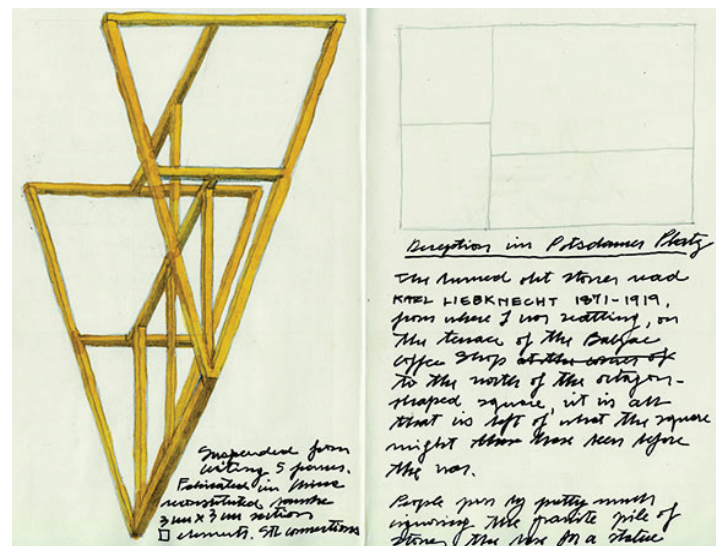 Suspended from
5
Fabricated in
3 cm x 3 cm section
elements. connections
Deception in Potsdamer Platz
The old stones read
KARL LIEBKNECHT 1871-1919,
from where I was , on
the terrace of the Balzac
Coffee Shop at the corner of
to the north of the octagon-
shaped square, it is all
that is left of what the square
might have been before
the war.
People pass by pretty much
ignoring the granite pile of
stones the base for a statue